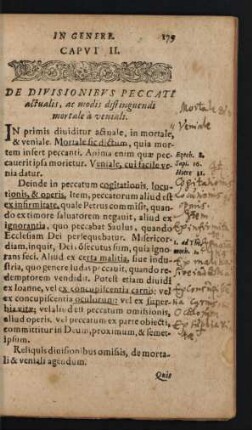 IN GENERE. 175
CAPVT II.
DE DIVISIONIBVS PECCATI
actualis, ac modis distinguendi
mortale à veniali.
IN primis diuiditur actuale, in mortale,
& veniale. Mortale sic dictum, quia mor-
tem infert peccanti. Anima enim quæ pec-
cauerit ipsa morietur. Veniale, cui facile ve-
nia datur.
Deinde in peccatum cogitationis, locu-
tionis, & operis, Item, peccatorum aliud est
ex infirmitate, quale Petrus commisit, quan-
do extimore saluatorem negauit, aliud ex
ignorantia, quo peccabat Saulus, quando
Ecclesiam Dei persequebatur. Misericor-
diam, inquit, Dei cõsecutus sum, quia igno-
rans feci. Aliud ex certa malitia, siue indu-
stria, quo genere Iudas peccauit, quando re-
demptorem vendidit. Potest etiam diuidi
ex Ioanne, vel ex concupiscentia carnis, vel
ex concupiscentia oculorum, vel ex super-
bia vitæ: velaliud est peccatum omissionis,
aliud operis. vel peccatum ex parte obiecti,
committitur in Deum, proximum, & semet-
ipsum.
Reliquis diuisionibus omissis, de morta-
li & veniali agendum.
Quis
Mortale
Veniale
Ezech. 8.